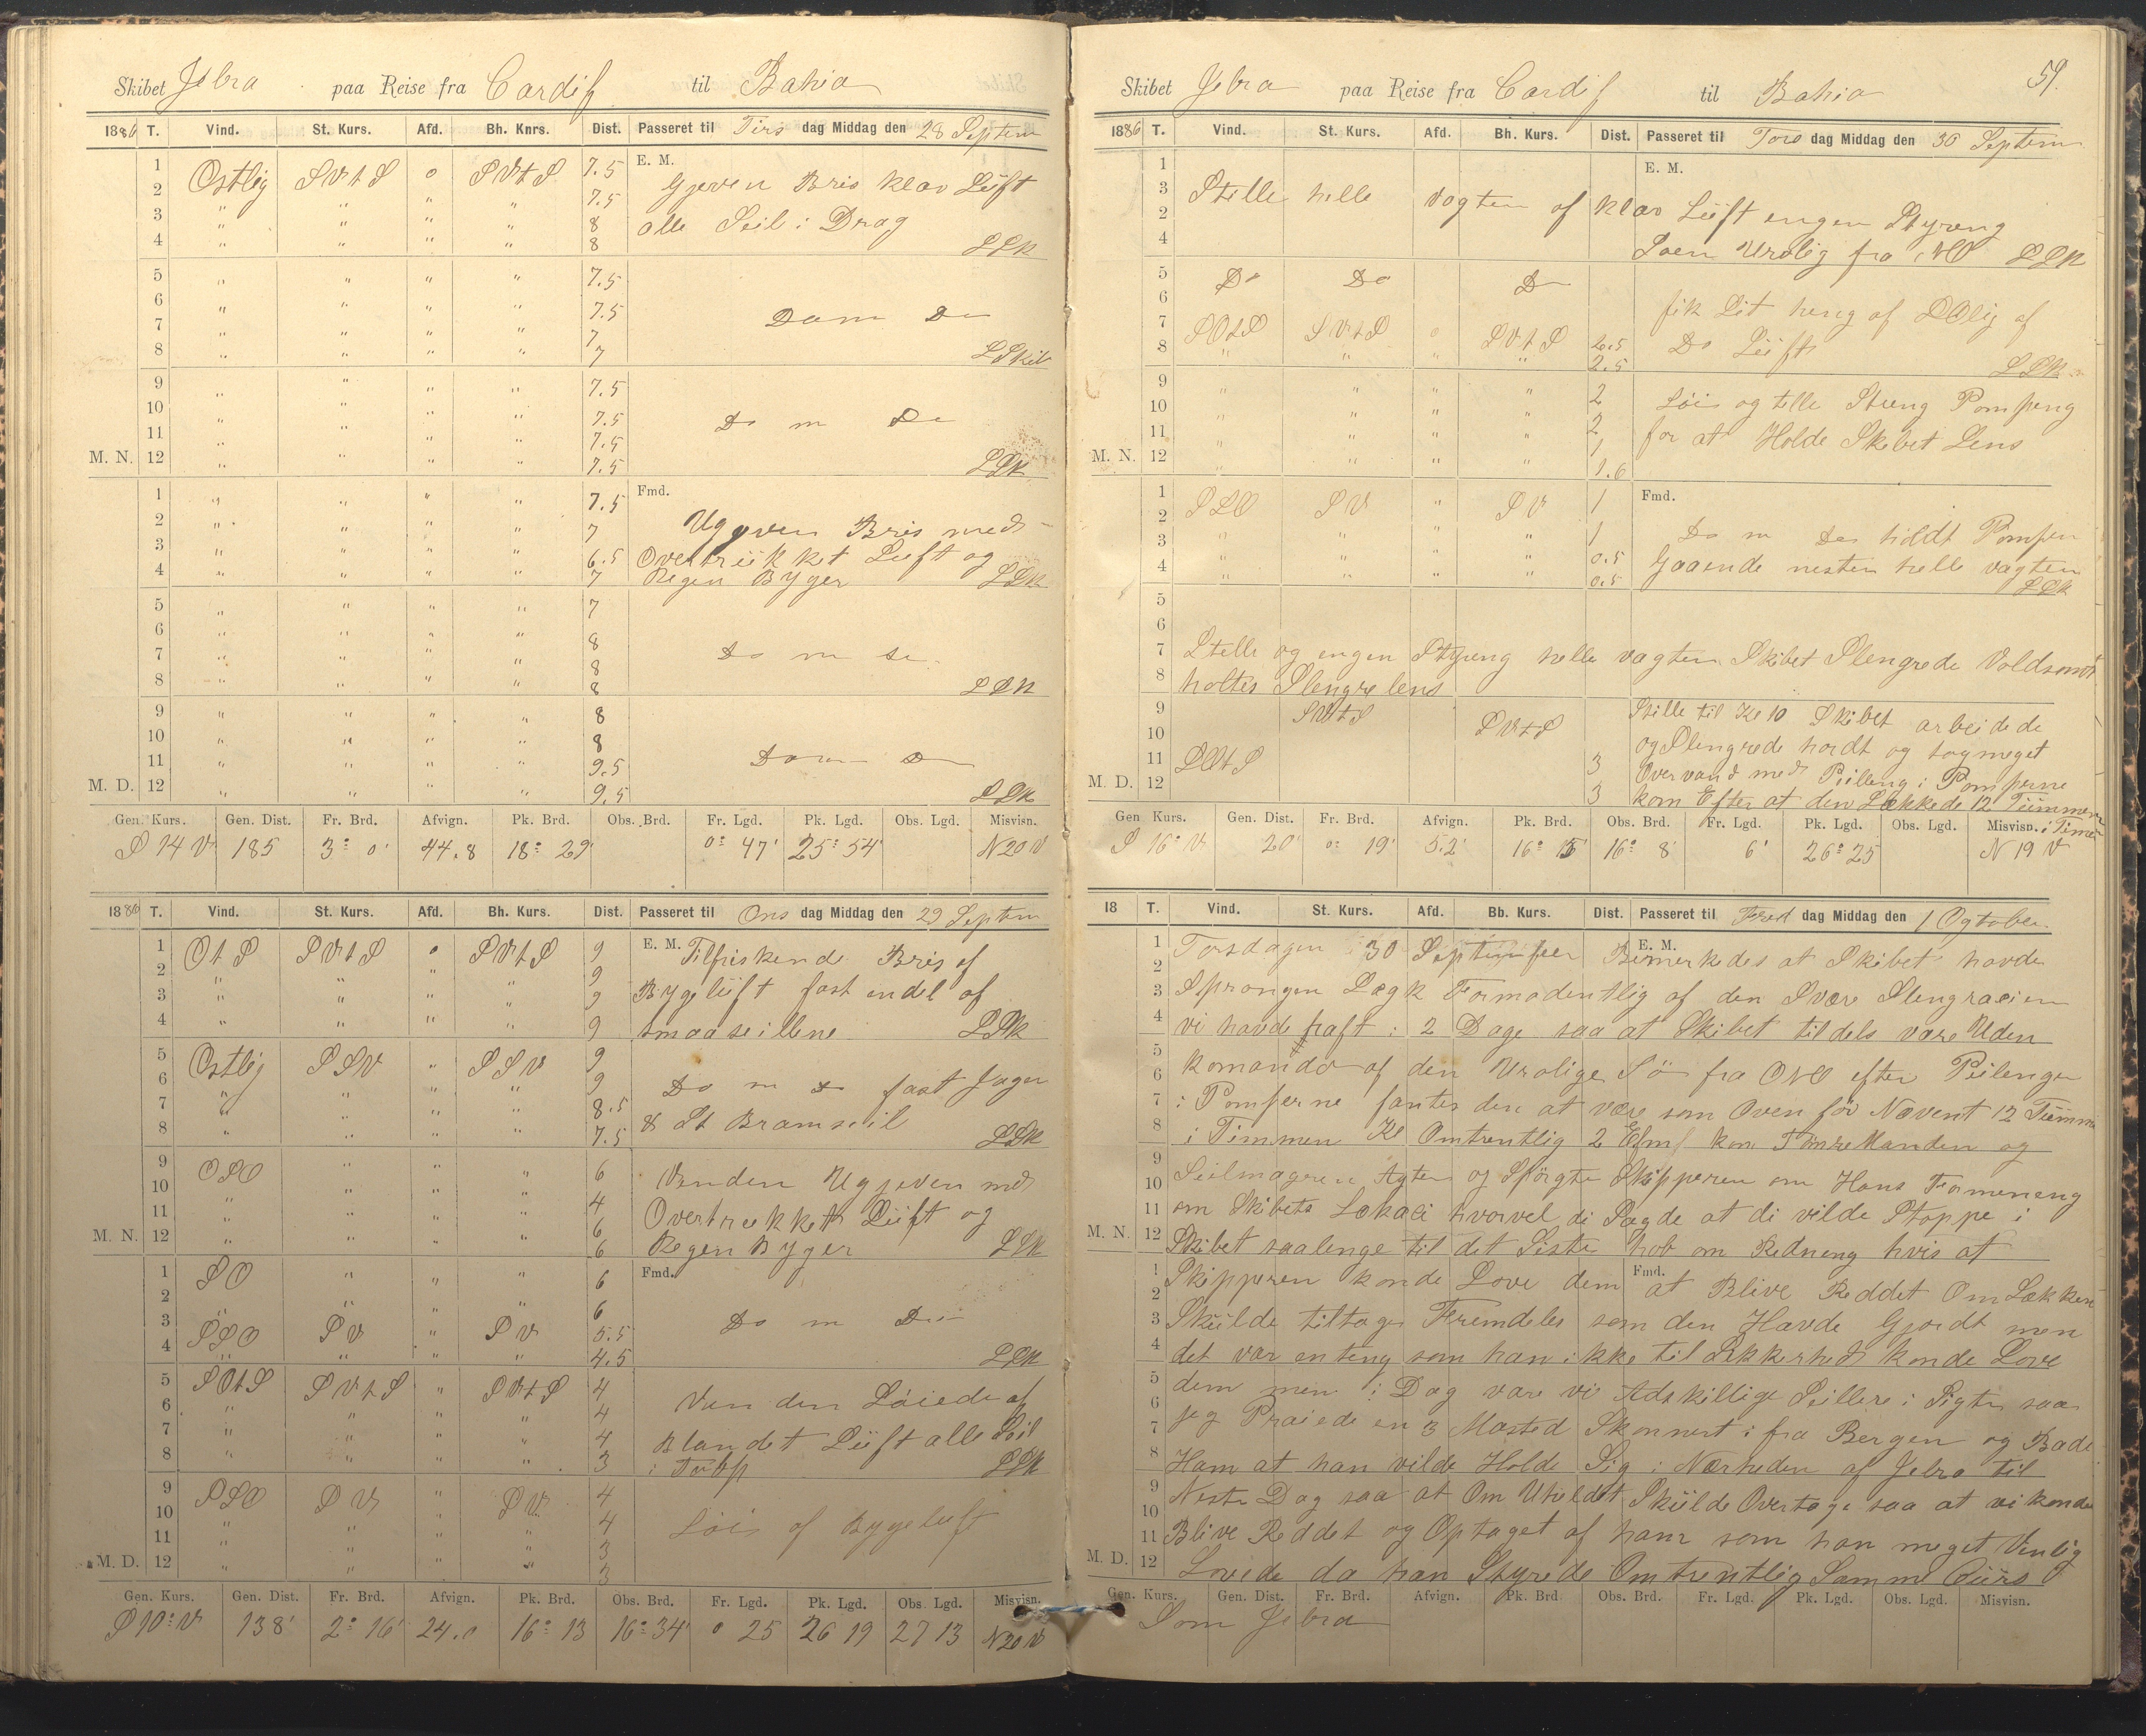 Skibet Jebra paa Reise fra Cardif til Bahia
1886 T. Vind. St. Kurs. Afd. Bh. Knrs. Dist. Passeret til Tirs dag Middag den 28 Septem
E. M.
1 Ostlig SVtS o SVtS 7.5 Gjeven Bris klar Lüft
2 " " " " 7.5
3 " " " " 8 alle Seil i Drag
4 " " " " 8
5 " " " " 7.5
6 " " " " 7.5 Dom Do
7 " " " " 7
8 " " " " 7
9 " " " " 7.5
10 " " " " 7.5 Do m Do
11 " " " " 7.5
M. N. 12 " " " " 7.5
Fmd.
1 " " " " 7.5
2 " " " " 7 Ugjeven Bris med
3 " " " " 6.5 Overtrükket Luft og
4 " " " " 7 Regen Byger
5 " " " " 7
6 " " " " 8
7 " " " " 8 Do m Do
8 " " " " 8
9 " " " " 8
10 " " " " 8
11 " " " " 9.5 Dom Do
M. D. 12 " " " " 9.5
Gen. Kurs. Gen. Dist. Fr. Brd. Afvign. Pk. Brd. Obs. Brd. Fr. Lgd. Pk. Lgd. Obs. Lgd. Misvisn.
S 14 V 185 3° 0' 44.8 18° 29' 0° 47' 25° 54' N20V
1886 T. Vind. St. Kurs. Afd. Bh. Kurs. Dist. Passeret til Ons dag Middag den 29 Septem
1 OtS SVtS o SVtS 9 E. M. Tilfriskend Bris af
2 " " " " 9
3 " " " " 9 Bygelüft fast endel af
4 " " " " 9 smaaseillene
5 Ostlig SSV " SSV 9
6 " " " " 9 Do m Do fast Jager
7 " " " " 8.5
8 " " " " 7.5 & St Bramseil
9 OSO " " " 6 Venden Ugjeven med
10 " " " " 4
11 " " " " 6 Overtrukket Lüft og
M. N. 12 " " " " 6 Regen Byger
Fmd.
1 SO " " " 6
2 " " " " 6
3 SSO SV " SV 5.5 Do m Do
4 " " " " 4.5
5 SOtS SVtS " SVtS 4
6 " " " " 4 Venden Løiede af
7 " " " " 4 Blandet Lüft alle Seil
8 " " " " 3
9 SSO SV " SV 4
10 " " " " 4 Løis af Bygeluft
11 " " " " 3
M. D. 12 " " " " 3
Gen. Kurs. Gen. Dist. Fr. Brd. Afvign. Pk. Brd. Obs. Brd. Fr. Lgd. Pk. Lgd. Obs. Lgd. Misvisn.
S 10° V 138' 2° 16' 24.0 16° 13 16° 34' 0 25 26 19 27 13 N20V
59.
Skibet Jebra paa Reise fra Cardif til Bahia
1886 T. Vind. St. Kurs. Afd. Bh. Kurs. Dist. Passeret til Tors dag Middag den 30 Septem
E. M.
1
3 Stille helle vagten af klar Lüft engen Styreng
2
4 Soen Urolig fra NO
5 Do Do Do
6 fik Lit heng af SOlig af
7 SOtS SVtS o SVtS 2.5 Do Lüft
8 " " " " 2.5
9 " " " " 2 Løis og
10 " " " " 2 Pompeng
11 " " " " 1 for at Holde Skibet Lens
M. N. 12 " " " " 1.6
Fmd.
1 SSO SV " SV 1
2 " " " " 1 Do m Do holdt Pompen
3 " " " " 0.5 Gaaende nesten helle vagten
4 " " " " 0.5
5
6
7 Stelle og engen Styreng helle vagten Skibet Slengrede Voldsomt
8 holtes Slengre lens
9 SVtS SVtS Stille til Kl 10 Skibet arbeidede
10 og Slengrede hardt og tog meget
11 SOtS 3 Overvand med Peileng i Pomperne
M. D. 12 3 kom Efter at den Lækkede 12 Tümmer
i Timen
Gen Kurs. Gen. Dist. Fr. Brd. Afvign. Pk. Brd. Obs. Brd. Fr. Lgd. Pk. Lgd. Obs. Lgd. Misvisn.
S 16° V 20' 0° 19' 5.2' 16° 15' 16° 8' 6' 26° 25 N 19 V
18 T. Vind. St. Kurs. Afd. Bb. Kurs. Dist. Passeret til Fred dag Middag den 1 Ogtober
E. M.
1 Torsdagen 30 September Bemerkedes at Skibet havde
2
3 Sprongen Lægk Formodentlig af den Svære Slengraeien
4 vi havde haft i 2 Dage saa at Skibet tildels være Uden
5
6 komando af den Urolige Sö fra ONO efter Peilengen
7 i Pomperne fantes den at være som Oven for Nævent 12 Tümmer
8 i Timmen Kl Omtrentlig 2 Efm kom TömreManden og
9
10 Seilmageren Agter og Spörgte Skipperen om Hans Formeneng
11 om Skibets Lækasi hvorvel di Sagde at di vilde Stoppe i
M. N. 12 Skibet saalenge til det Siste hob om Redneng hvis at
Fmd.
1 Skipperen konde Love dem at Blive Reddet Om Lækken
2
3 Skülde tiltage Fremdeles som den Havde Gjordt men
4 det var enteng som han ikke til Sikkerhed konde Love
5 dem men i Dag vare vi Adskillige Seillere i Sigte saa
6
7 jeg Praiede en 3 Masted Skonnert i fra Bergen og Bade
8 Ham at han vilde Holde Sig i Nærheden af Jebra til
9 Neste Dag saa at Om Uheldet Skülde Overtage saa at vi konde
10
11 Blive Reddet og Optaget af ham som han meget Venlig
M. D. 12 Lovede da han Styrede Omtrentlig Samme Cürs
Gen. Kurs. Gen. Dist. Fr. Brd. Afvign. Pk. Brd Obs. Brd. Fr. Lgd. Pk. Lgd. Obs. Lgd. Misvisn.
Som Jebra